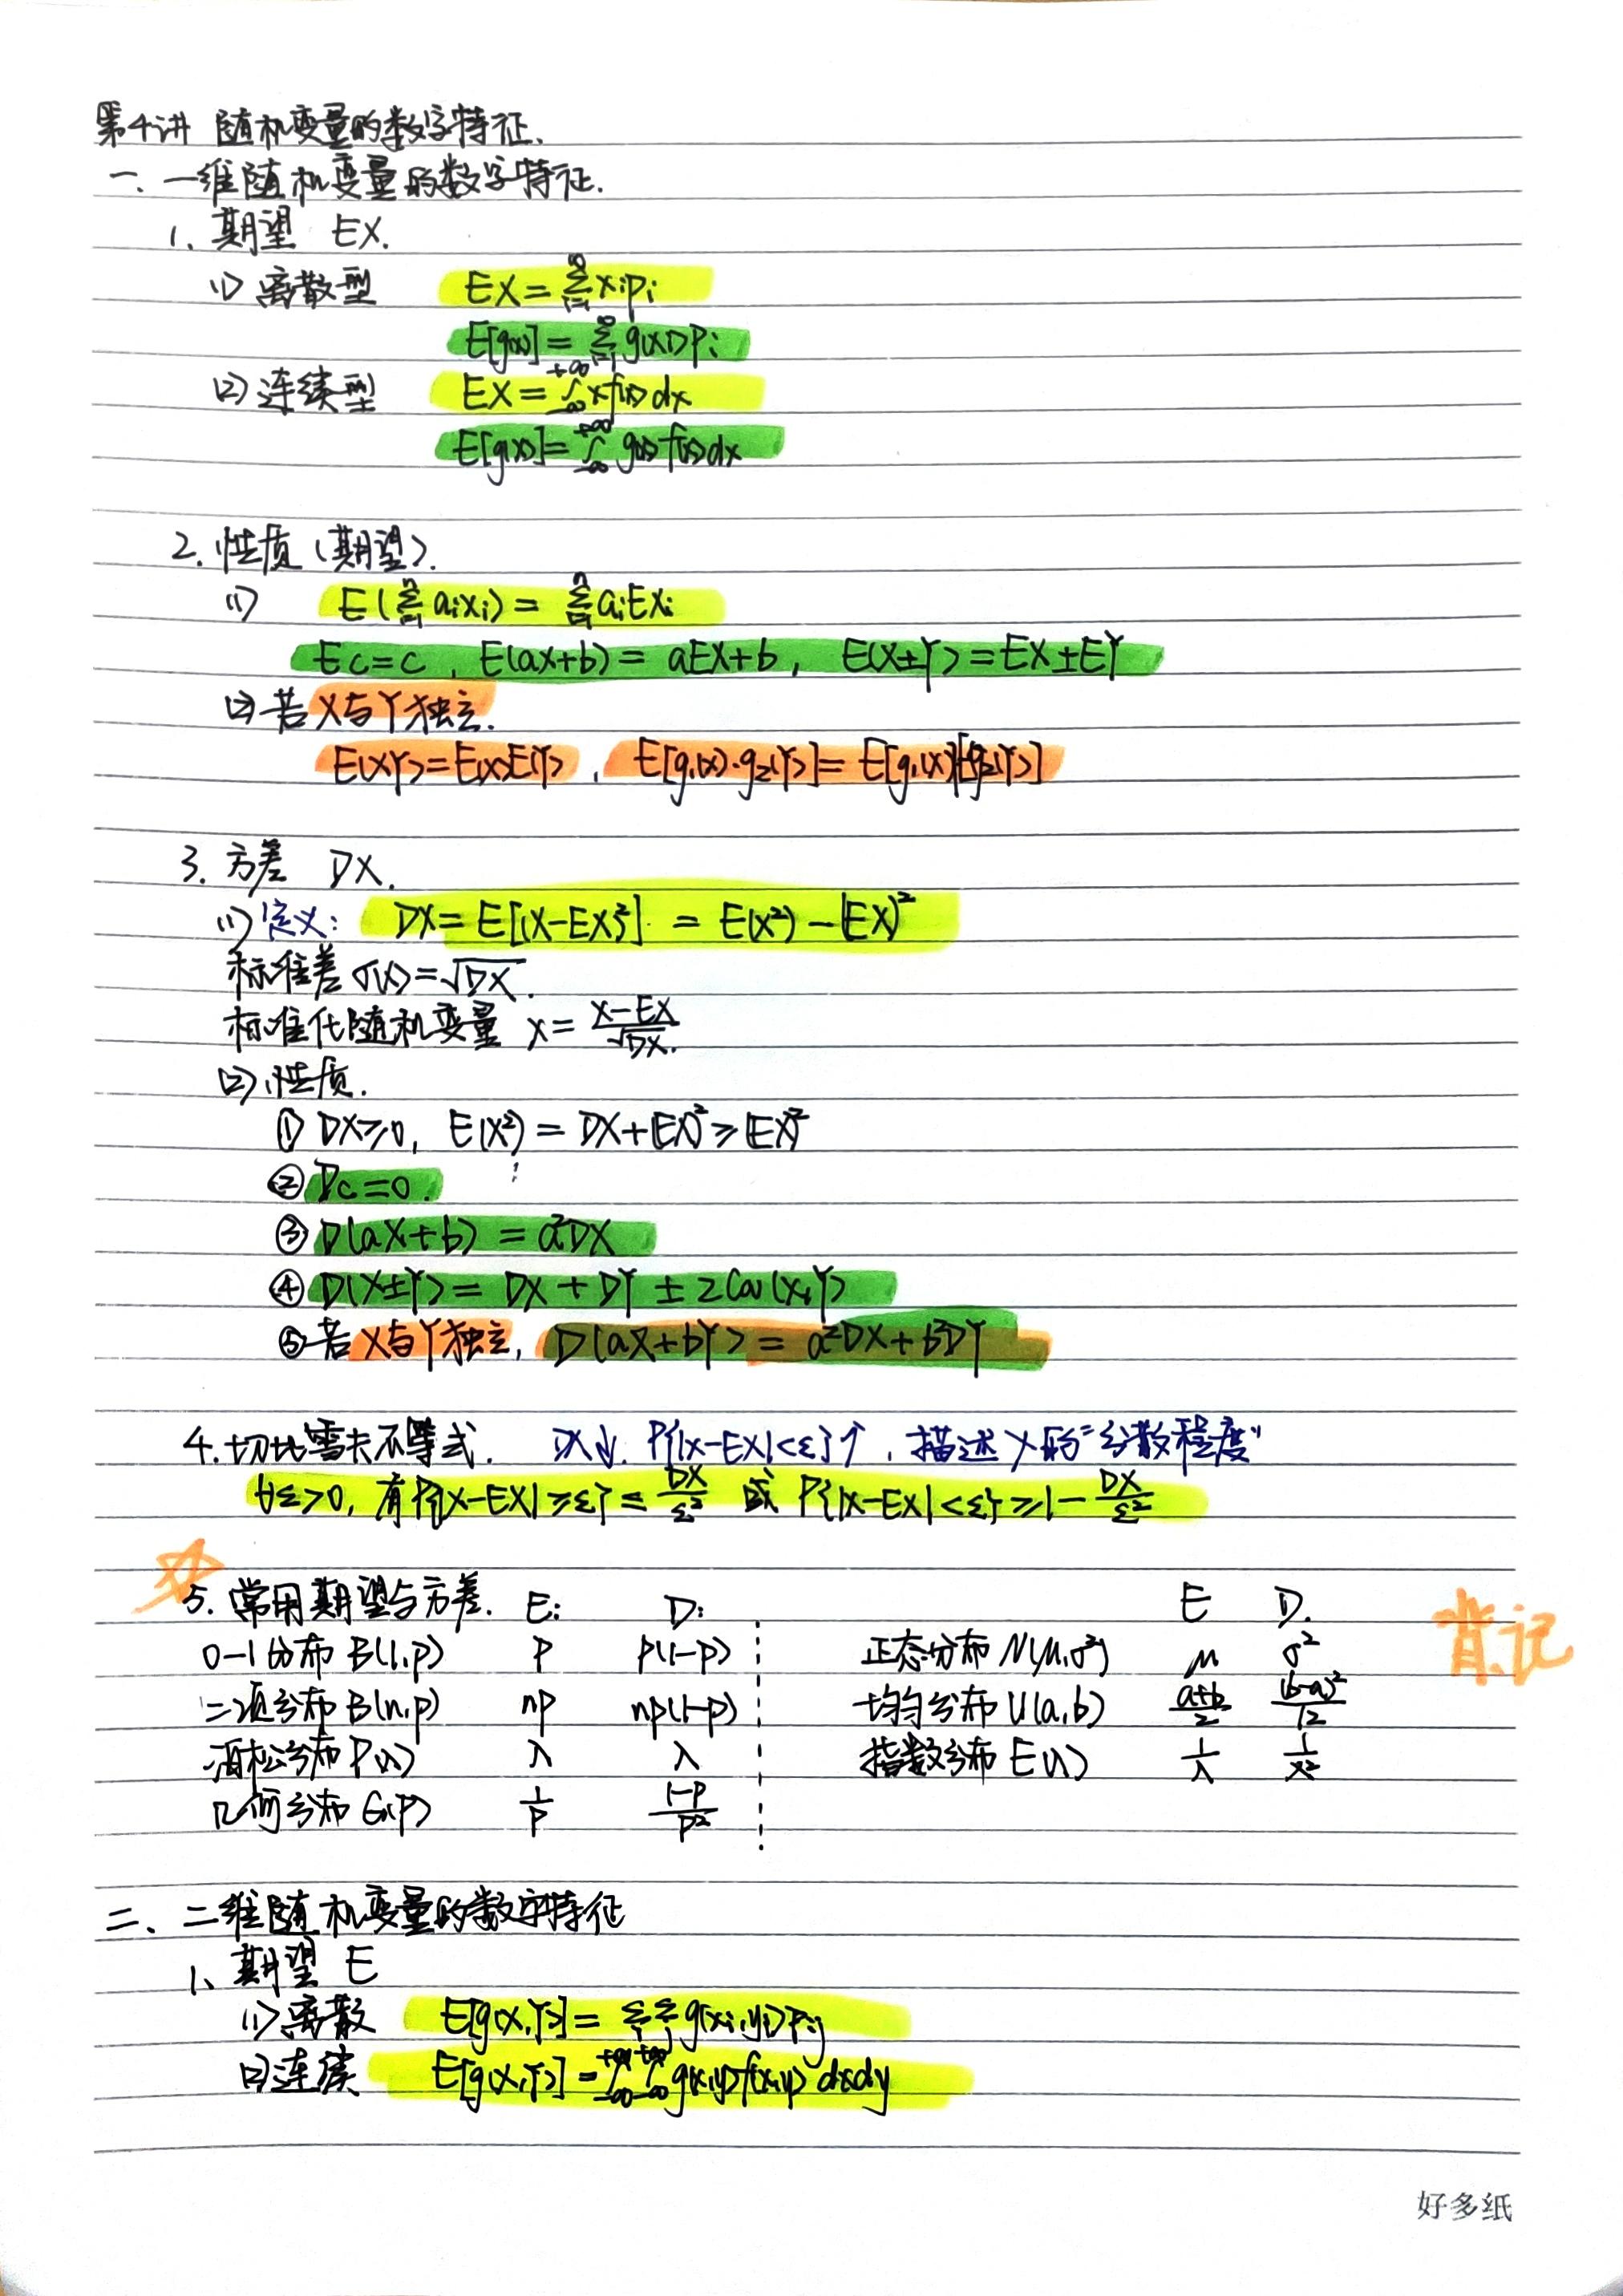 第4讲 随机变量的数字特征.
一. 一维随机变量的数字特征.
1. 期望 EX.
(1) 离散型 EX = ∑_{i=1}^{∞} x_i p_i
E[g(x)] = ∑_{i=1}^{∞} g(x_i) p_i
(2) 连续型 EX = ∫_{-∞}^{+∞} x f(x) dx
E[g(x)] = ∫_{-∞}^{+∞} g(x) f(x) dx
2. 性质 (期望).
(1) E(∑_{i=1}^{n} a_i x_i) = ∑_{i=1}^{n} a_i EX_i
Ec = c , E(aX+b) = aEX+b , E(X±Y) = EX±EY
(2) 若X与Y独立.
E(XY) = E(X)E(Y) , E[g₁(X)·g₂(Y)] = E[g₁(X)]E[g₂(Y)]
3. 方差 DX.
(1) 定义: DX = E[(X-EX)²] = E(X²) - (EX)²
标准差 σ(X) = √DX .
标准化随机变量 X = (X-EX)/√DX.
(2) 性质.
① DX≥0, E(X²) = DX+(EX)² ≥ (EX)²
② Dc=0.
③ D(aX+b) = a²DX
④ D(X±Y) = DX + DY ± 2Cov(X,Y)
⑤ 若X与Y独立, D(aX+bY) = a²DX+b²DY
4. 切比雪夫不等式. DX↓. P{|X-EX|<ε}↑ , 描述X的"分散程度"
∀ε>0, 有P{|X-EX|≥ε} ≤ DX/ε² 或 P{|X-EX|<ε} ≥ 1 - DX/ε²
5. 常用期望与方差. E: D: E D.
背记
0-1分布 B(1,p) p p(1-p) 正态分布 N(μ,σ²) μ σ²
二项分布 B(n,p) np np(1-p) 均匀分布 U(a,b) (a+b)/2 (b-a)²/12
泊松分布 P(λ) λ λ 指数分布 E(λ) 1/λ 1/λ²
几何分布 G(p) 1/p (1-p)/p²
二、二维随机变量的数字特征
1、期望 E
(1) 离散 E[g(X,Y)] = ∑_i ∑_j g(x_i,y_j) p_ij
(2) 连续 E[g(X,Y)] = ∫_{-∞}^{+∞} ∫_{-∞}^{+∞} g(x,y) f(x,y) dxdy
好多纸